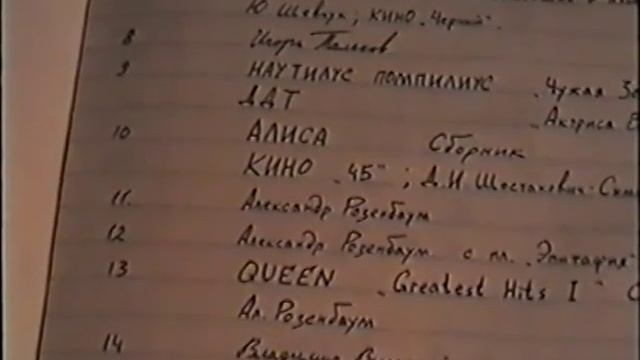 Ю Шевчук; КИНО „Черный".
8 Игорь Тальков
9 НАУТИЛУС ПОМПИЛИУС „Чужая
ДДТ „Актриса
10 АЛИСА Сборник
КИНО „45"; Д.И Шостакович-
11. Александр Розенбаум
12 Александр Розенбаум с пл. „Эпитафия"
13 QUEEN „Greatest Hits I"
Ал. Розенбаум
14